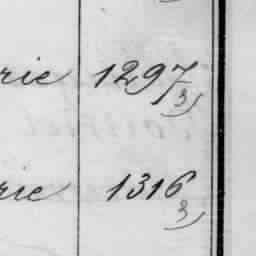 rie 1297
3)
rie 1316
3)